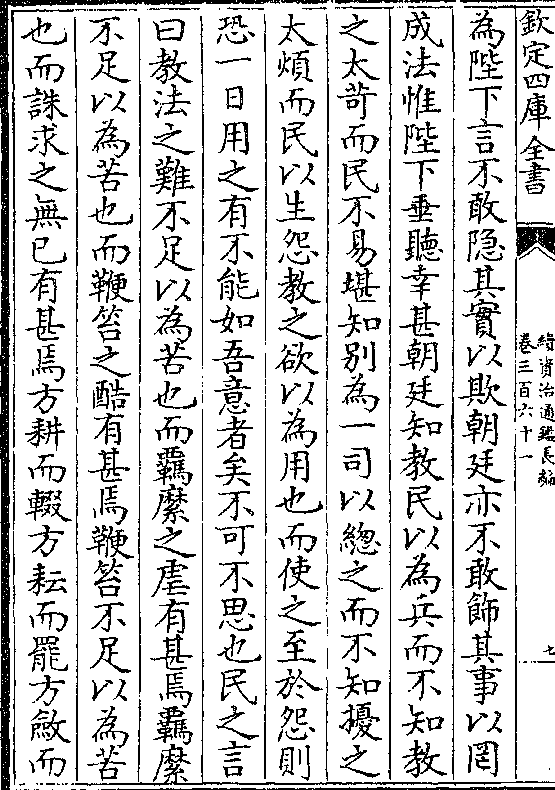 欽定四庫全書
續資治通鑑長編
卷三百六十一
七
為陛下言不敢隐其實以欺朝廷亦不敢飾其事以罔
成法惟陛下垂聽幸甚朝廷知教民以為兵而不知教
之太苛而民不易堪知別為一司以緫之而不知擾之
太煩而民以生怨教之欲以為用也而使之至於怨則
恐一日用之有不能如吾意者矣不可不思也民之言
曰教法之難不足以為苦也而羈縻之虐有甚焉羈縻
不足以為苦也而鞭笞之酷有甚焉鞭笞不足以為苦
也而誅求之無已有甚焉方耕而輟方耘而罷方斂而